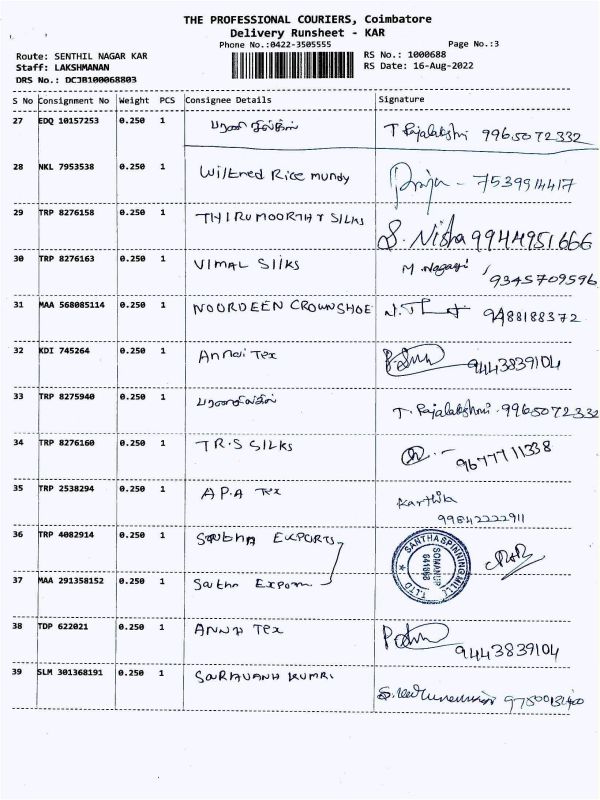 THE PROFESSIONAL COURIERS, Coimbatore
Delivery Runsheet - KAR
Phone No.:0422-3505555
Page No.:3
Route: SENTHIL NAGAR KAR
RS No.: 1000688
Staff: LAKSHMANAN
RS Date: 16-Aug-2022
DRS No.: DCJB100068803
S No Consignment No Weight PCS Consignee Details Signature
27 EDQ 10157253 0.250 1 T Rajalakshmi 9965072332
28 NKL 7953538 0.250 1 Wilfred Rice mundy 7539914417
29 TRP 8276158 0.250 1 THIRUMOORTHY SILKS S. Nisha 9944951666
30 TRP 8276163 0.250 1 VIMAL SIlKS M. Nagaji 9345709596
31 MAA 568085114 0.250 1 NOORDEEN CROWNSHOE 9488188372
32 KDI 745264 0.250 1 Annai Tex 9443839104
33 TRP 8275940 0.250 1 T. Rajalakshmi 9965072332
34 TRP 8276160 0.250 1 T.R.S SILKS 9677711338
35 TRP 2538294 0.250 1 A.P.A Tex Karthika
99842222911
36 TRP 4082914 0.250 1 EXPORTS
SANTHA SPINNING MILL
SOMANUR
641668
37 MAA 291358152 0.250 1
38 TDP 622021 0.250 1 ANNA Tex 9443839104
39 SLM 301368191 0.250 1